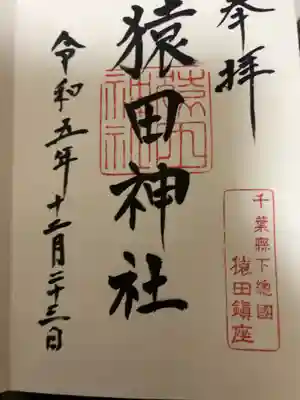 奉拝
千葉縣下總國
猿田鎮座
猿田神社
猿田神社
令和五年十二月二十三日